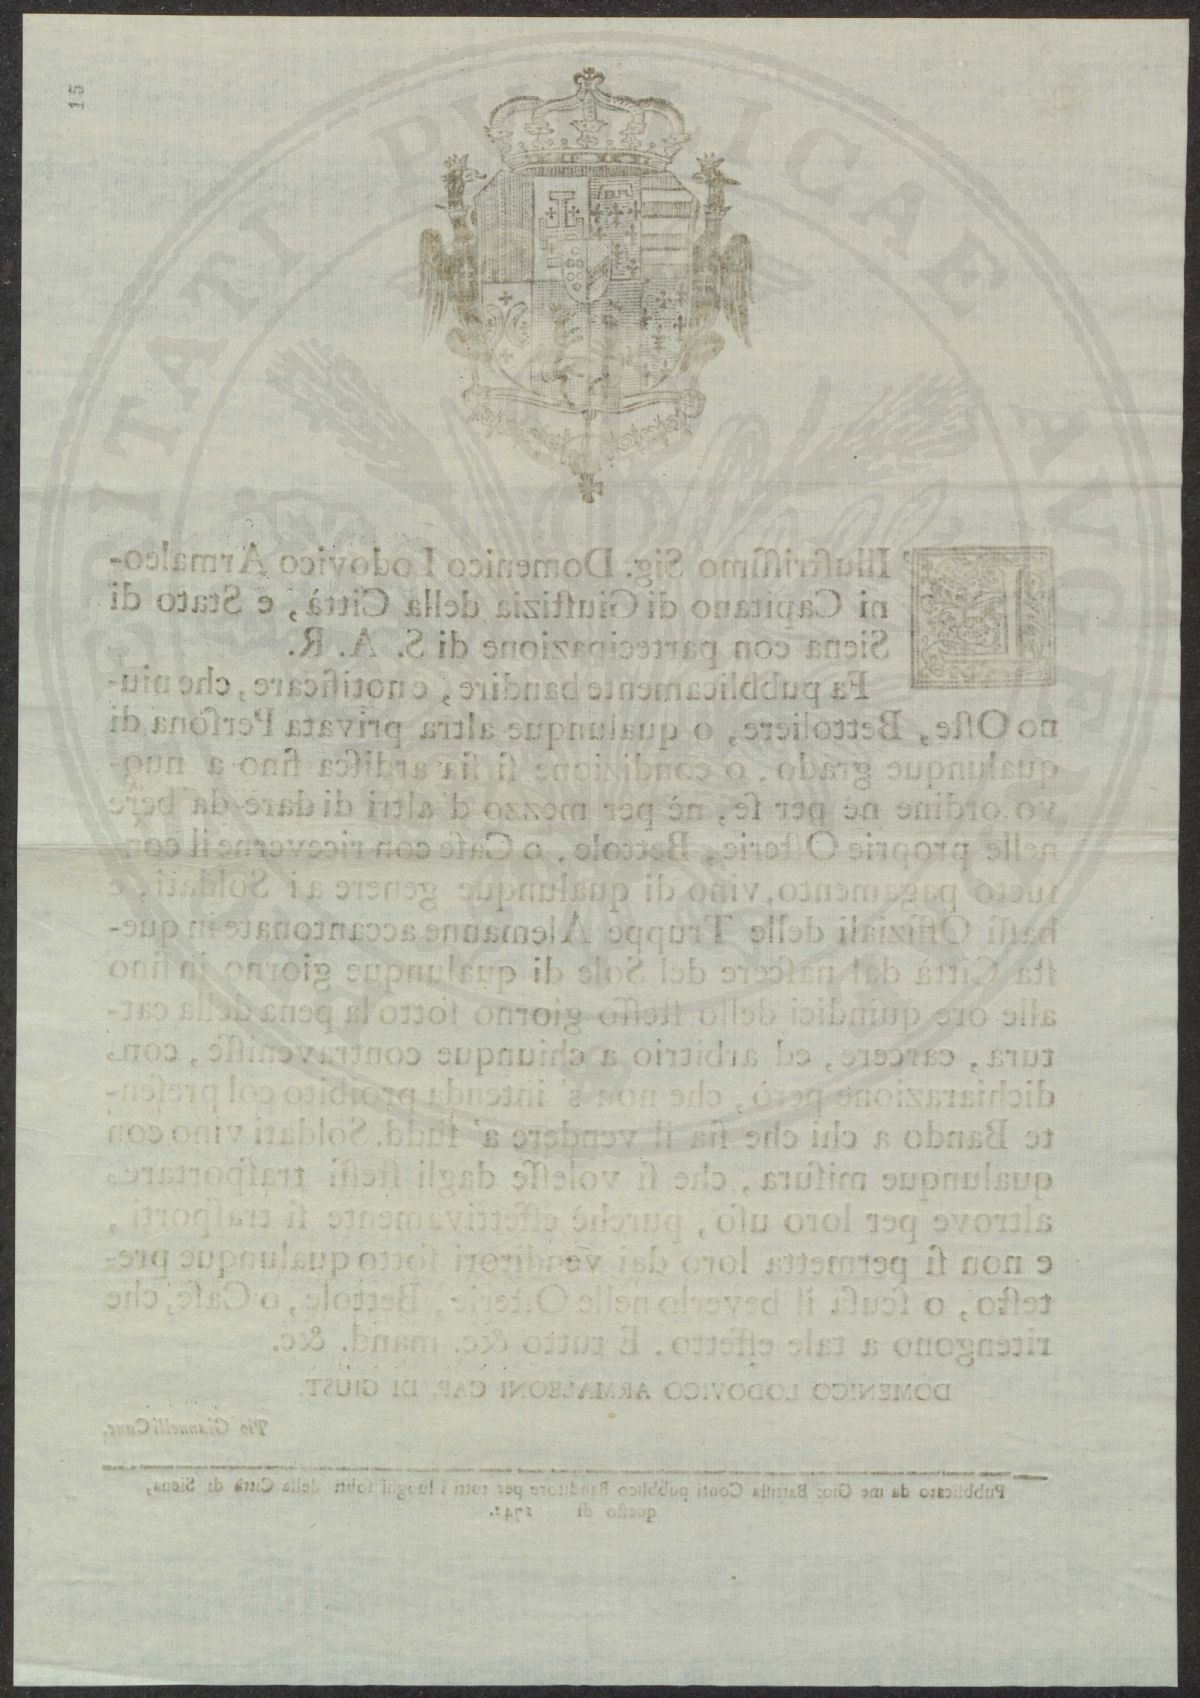 15
L' Illuſtriſſimo Sig. Domenico Lodovico Armaleo-
ni Capitano di Giuſtizia della Città, e Stato di
Siena con partecipazione di S. A. R.
Fa pubblicamente bandire, e notificare, che niu-
no Oſte, Bettoliere, o qualunque altra privata Perſona di
qualunque grado, o condizione ſi ſia ardiſca fino a nuo-
vo ordine nè per ſe, nè per mezzo d'altri di dare da bere
nelle proprie Oſterie, Bettole, o Caſe con riceverne il con-
ſueto pagamento, vino di qualunque genere a i Soldati, e
baſſi Offiziali delle Truppe Alemanne accantonate in que-
ſta Città dal naſcere del Sole di qualunque giorno in ſino
alle ore quindici dello ſteſſo giorno ſotto la pena della cat-
tura, carcere, ed arbitrio a chiunque contraveniſſe, con
dichiarazione però, che non s' intenda proibito col preſen-
te Bando a chi che ſia il vendere a' ſudd. Soldati vino con
qualunque miſura, che ſi voleſſe dagli ſteſſi traſportare
altrove per loro uſo, purchè effettivamente ſi traſporti,
e non ſi permetta loro dai venditori ſotto qualunque pre-
teſto, o ſcuſa il beverlo nelle Oſterie, Bettole, o Caſe, che
ritengono a tale effetto. E tutto &c. mand. &c.
DOMENICO LODOVICO ARMALEONI CAP. DI GIUST.
Pio Giannelli Canc.
Pubblicato da me Gio: Battiſta Conti pubblico Banditore per tutti i luoghi ſoliti della Città di Siena,
queſto dì 1741.